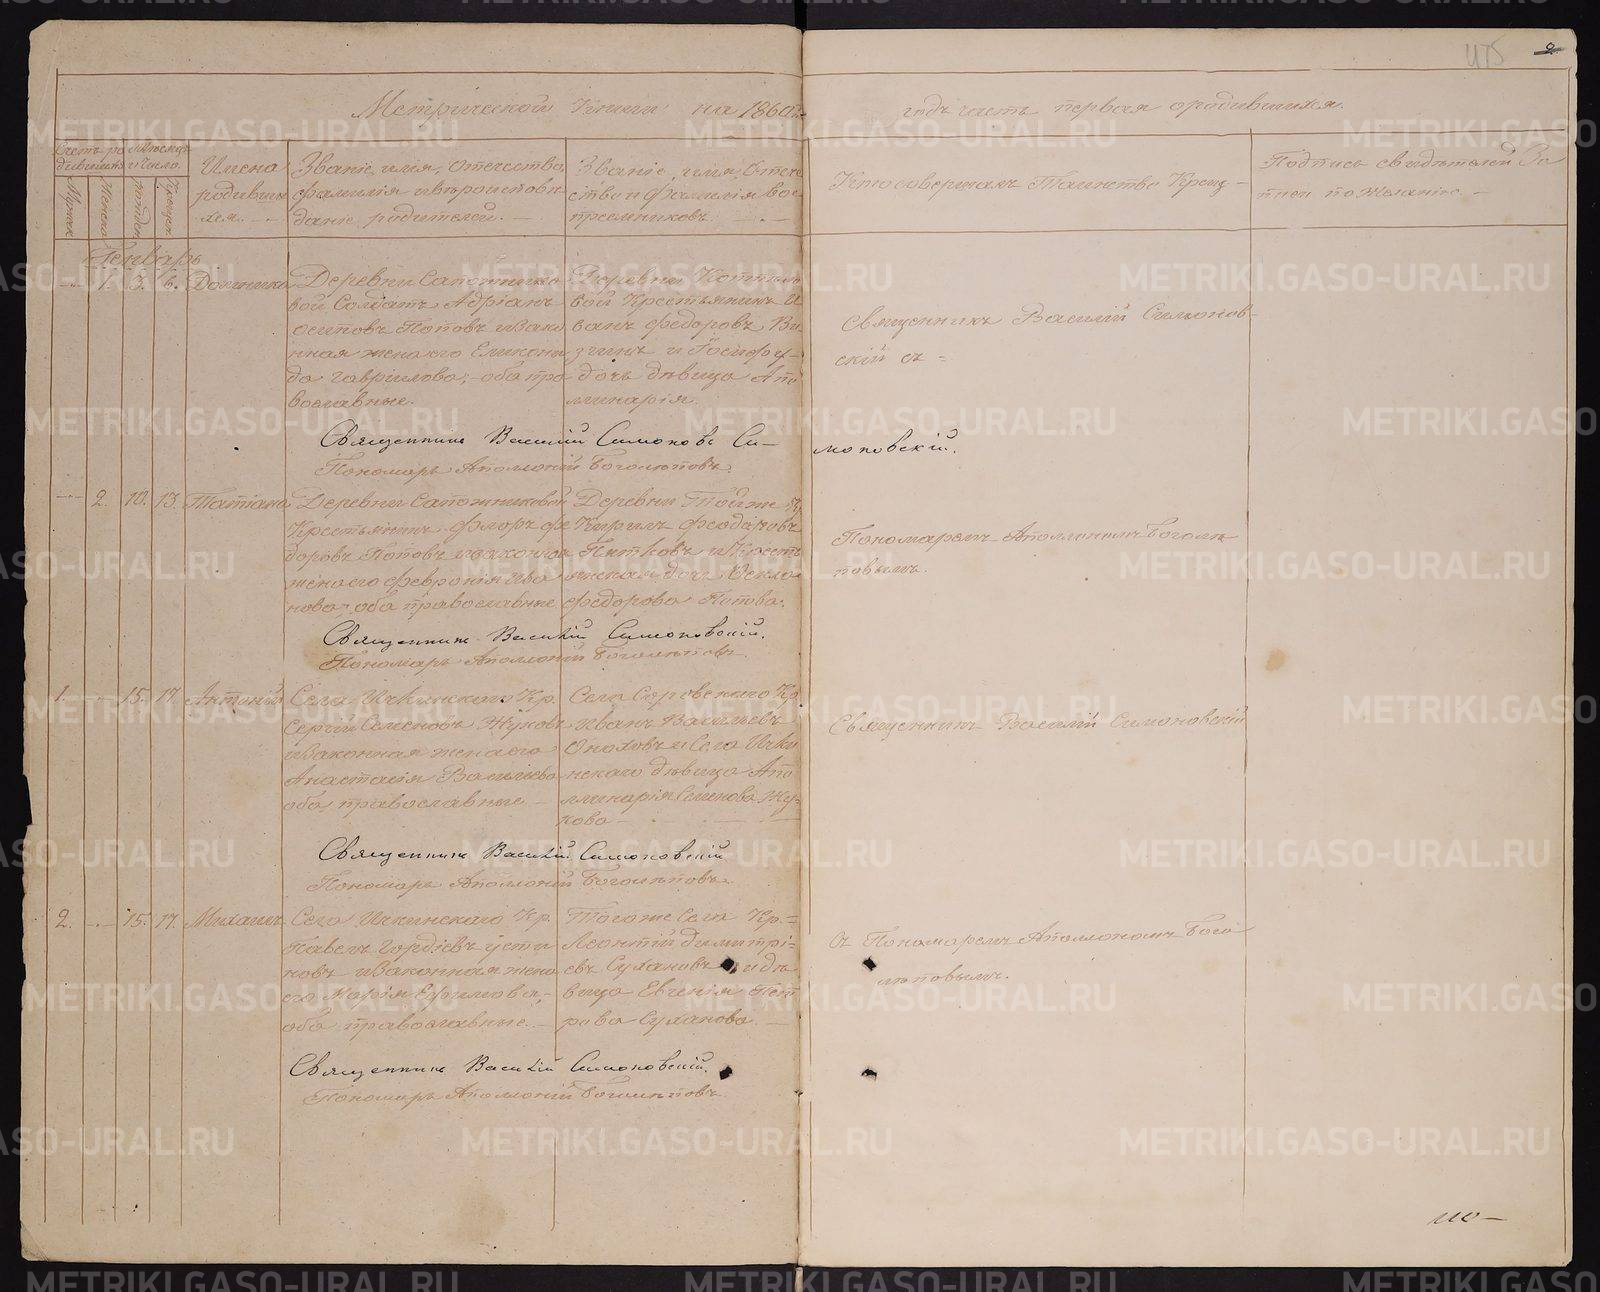 475
2
Метрической книги на 1860й годъ часть первая ородившихся.
Счетъ родившихся
Мѣсяцъ и число.
Мужеск
Женска
рожден
Крещен
Имена родивших
хся.
Званіе, имя, отечество
фамилія ивѣроисповѣ
даніе родителей.
Званіе, имя, отече
ство и фамилія вос
преемниковъ.
Кто совершалъ Таинство Крещ-
Подпись свидѣтелей За
писи по Желанію
Генварь
1. 3. 6.
Деревни
вой Солдатъ Адріанъ
осиповъ Поповъ изако
нная жена его Еликони
да Гаврилова, оба пра
вославные.
Деревни
вой Крестьянинъ И
ванъ Федоровъ
дочь дѣвица Апо
линарія.
Священникъ Василій Симонов-
скій съ
Священникъ Василій Симоновъ Си-
моновскій.
Пономарь Аполлоній Боголѣповъ.
2. 10. 13. Татіана
Деревни Сапожниковой
Крестьянинъ Флоръ Фе
доровъ Поповъ изаконная
жена его Февронія
нова, оба православные
Деревни Тойже Кр
Кирилъ Феодоровъ
Пятковъ и Кресть
янская дочь
Федорова Попова.
Пономаремъ Аполлоніемъ Боголѣ
повымъ.
Священникъ Василій Симоновскій.
Пономарь Аполлоній Боголѣповъ.
1. 15. 17. Антоній
Села Ичкинскаго Кр.
Сергій Семеновъ Жуковъ
изаконная жена его
Анастасія Васильева
оба православные
Села Соровскаго Кр
Иванъ Васильевъ
и Села Ички
нскаго дѣвица Апо
линарія Семенова Жу-
кова
Священникъ Василій Симоновскій
Священникъ Василій Симоновскій
Пономарь Аполлоній Боголѣповъ.
2. 15. 17. Михаилъ
Села Ичкинскаго Кр.
Павелъ Гордіевъ Усти
новъ изаконная жена
его Марія Ефимова,
оба православные.
Тогоже Села Кр.=
Леонтій Димитрі=
евъ Сухановъ и дѣ
вица Евгенія Пет
рова Суханова.
съ Пономаремъ Аполлоніемъ Бого
лѣповымъ.
Священникъ Василій Симоновскій.
Пономарь Аполлоній Боголѣповъ.
METRIKI.GASO-URAL.RU